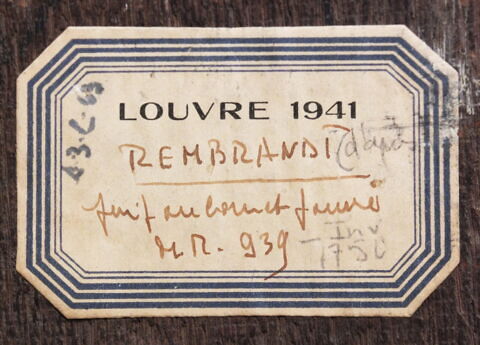 LOUVRE 1941
REMBRANDT (d'après
Juif au bonnet fourré
M.R. 939
Inv
1750